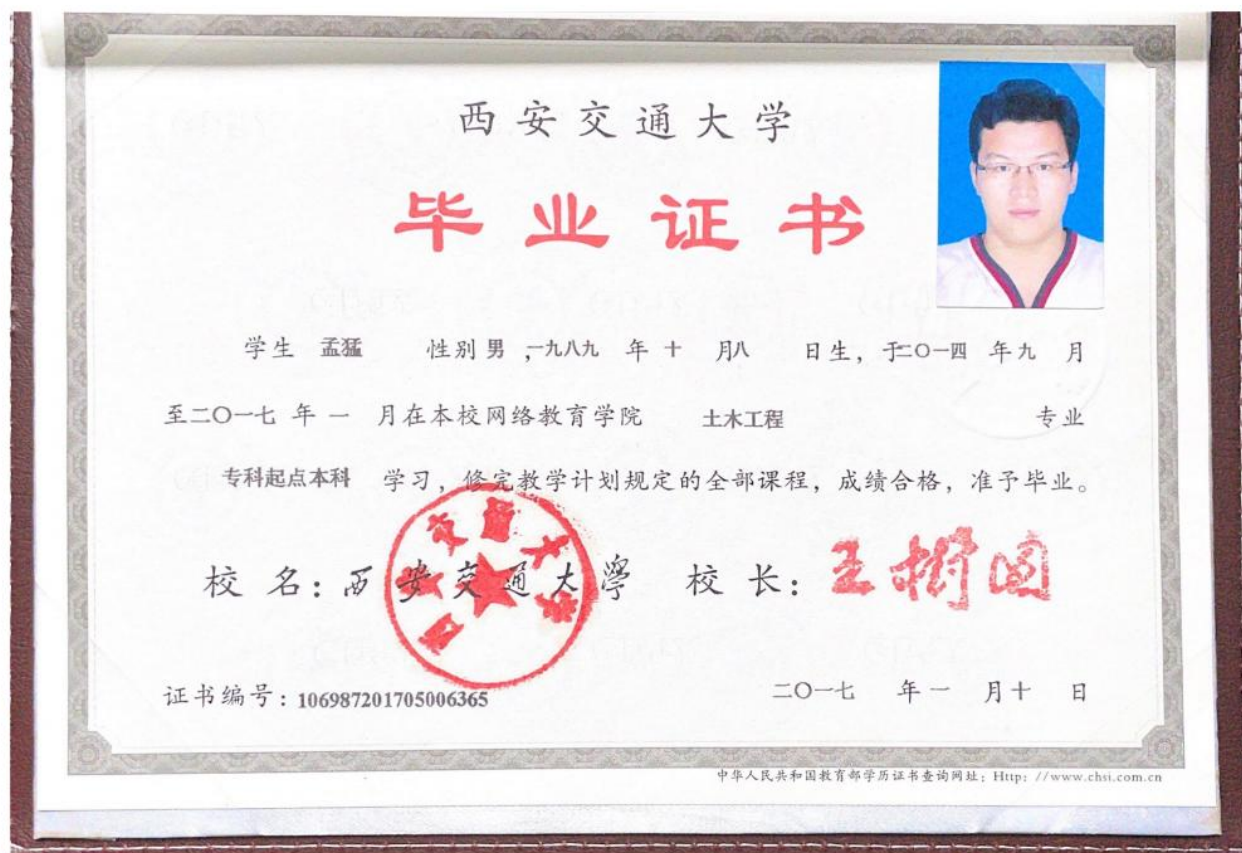 西安交通大学
毕业证书
学生 孟猛 性别 男 ,一九八九 年 十 月八 日生，于二〇一四 年九 月
至二〇一七 年 一 月在本校网络教育学院 土木工程 专业
专科起点本科 学习，修完教学计划规定的全部课程，成绩合格，准予毕业。
校 名：西安交通大學 校 长：王树国
西安交通大学
证书编号：106987201705006365 二〇一七 年 一 月十 日
中华人民共和国教育部学历证书查询网址：Http: //www.chsi.com.cn